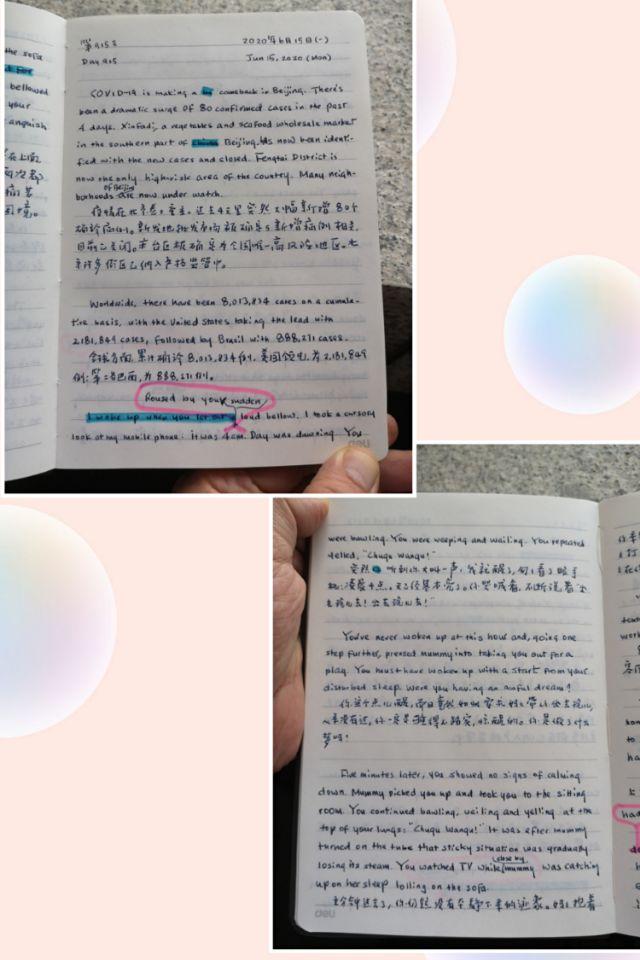 the sofa
bellowed
your
anguish
第915天 2020年6月15日(一)
Day 915 Jun 15, 2020 (Mon)
COVID-19 is making a big comeback in Beijing. There's
been a dramatic surge of 80 confirmed cases in the past
4 days. Xinfadi, a vegetables and seafood wholesale market
in the southern part of China Beijing, has now been identi-
fied with the new cases and closed. Fengtai District is
now the only high-risk area of the country. Many neigh-
of Beijing
borhoods are now under watch.
疫情在北京卷土重来,过去4天里突然大幅新增80个
确诊病例。新发地批发市场被确是与新增病例相关,
目前已关闭。丰台区被确是为全国唯一高风险地区。北
京许多街区已纳入严格监管中。
Worldwide, there have been 8,013,834 cases on a cumula-
tive basis, with the United States taking the lead with
2,181,849 cases, followed by Brazil with 888,271 cases.
全球方面,累计确诊8,013,834例,美国领先,为2,181,849
例;第二者巴西,为888,271例。
Roused by your sudden
I woke up when you let out a loud bellow. I took a cursory
look at my mobile phone: it was 4am. Day was dawning. You
were bawling. You were weeping and wailing. You repeated
yelled, "Chuqu Wanqu!"
突然听到你大叫一声,我就醒了,匆匆看了眼手
机:凌晨4点。天已经基本亮了。你哭喊着,不断说着"出
去玩儿去!出去玩儿去!"
You've never woken up at this hour and, going one
step further, pressed mummy into taking you out for a
play. You must have woken up with a start from your
disturbed sleep. Were you having an awful dream?
你这个点儿醒,而且竟然如此要求妈妈带你出去玩儿,
从来没有过,你一定是睡得不踏实,惊醒的。你是做了什么
梦呀!
Five minutes later, you showed no signs of calming
down. Mummy picked you up and took you to the sitting
room. You continued bawling, wailing and yelling at the
top of your lungs: "Chuqu Wanqu!" It was after mummy
turned on the tube that sticky situation was gradually
close by
losing its steam. You watched TV while mummy was catching
up on her sleep lolling on the sofa.
五分钟过去了,你仍然没有安静下来的迹象。妈妈抱着
had